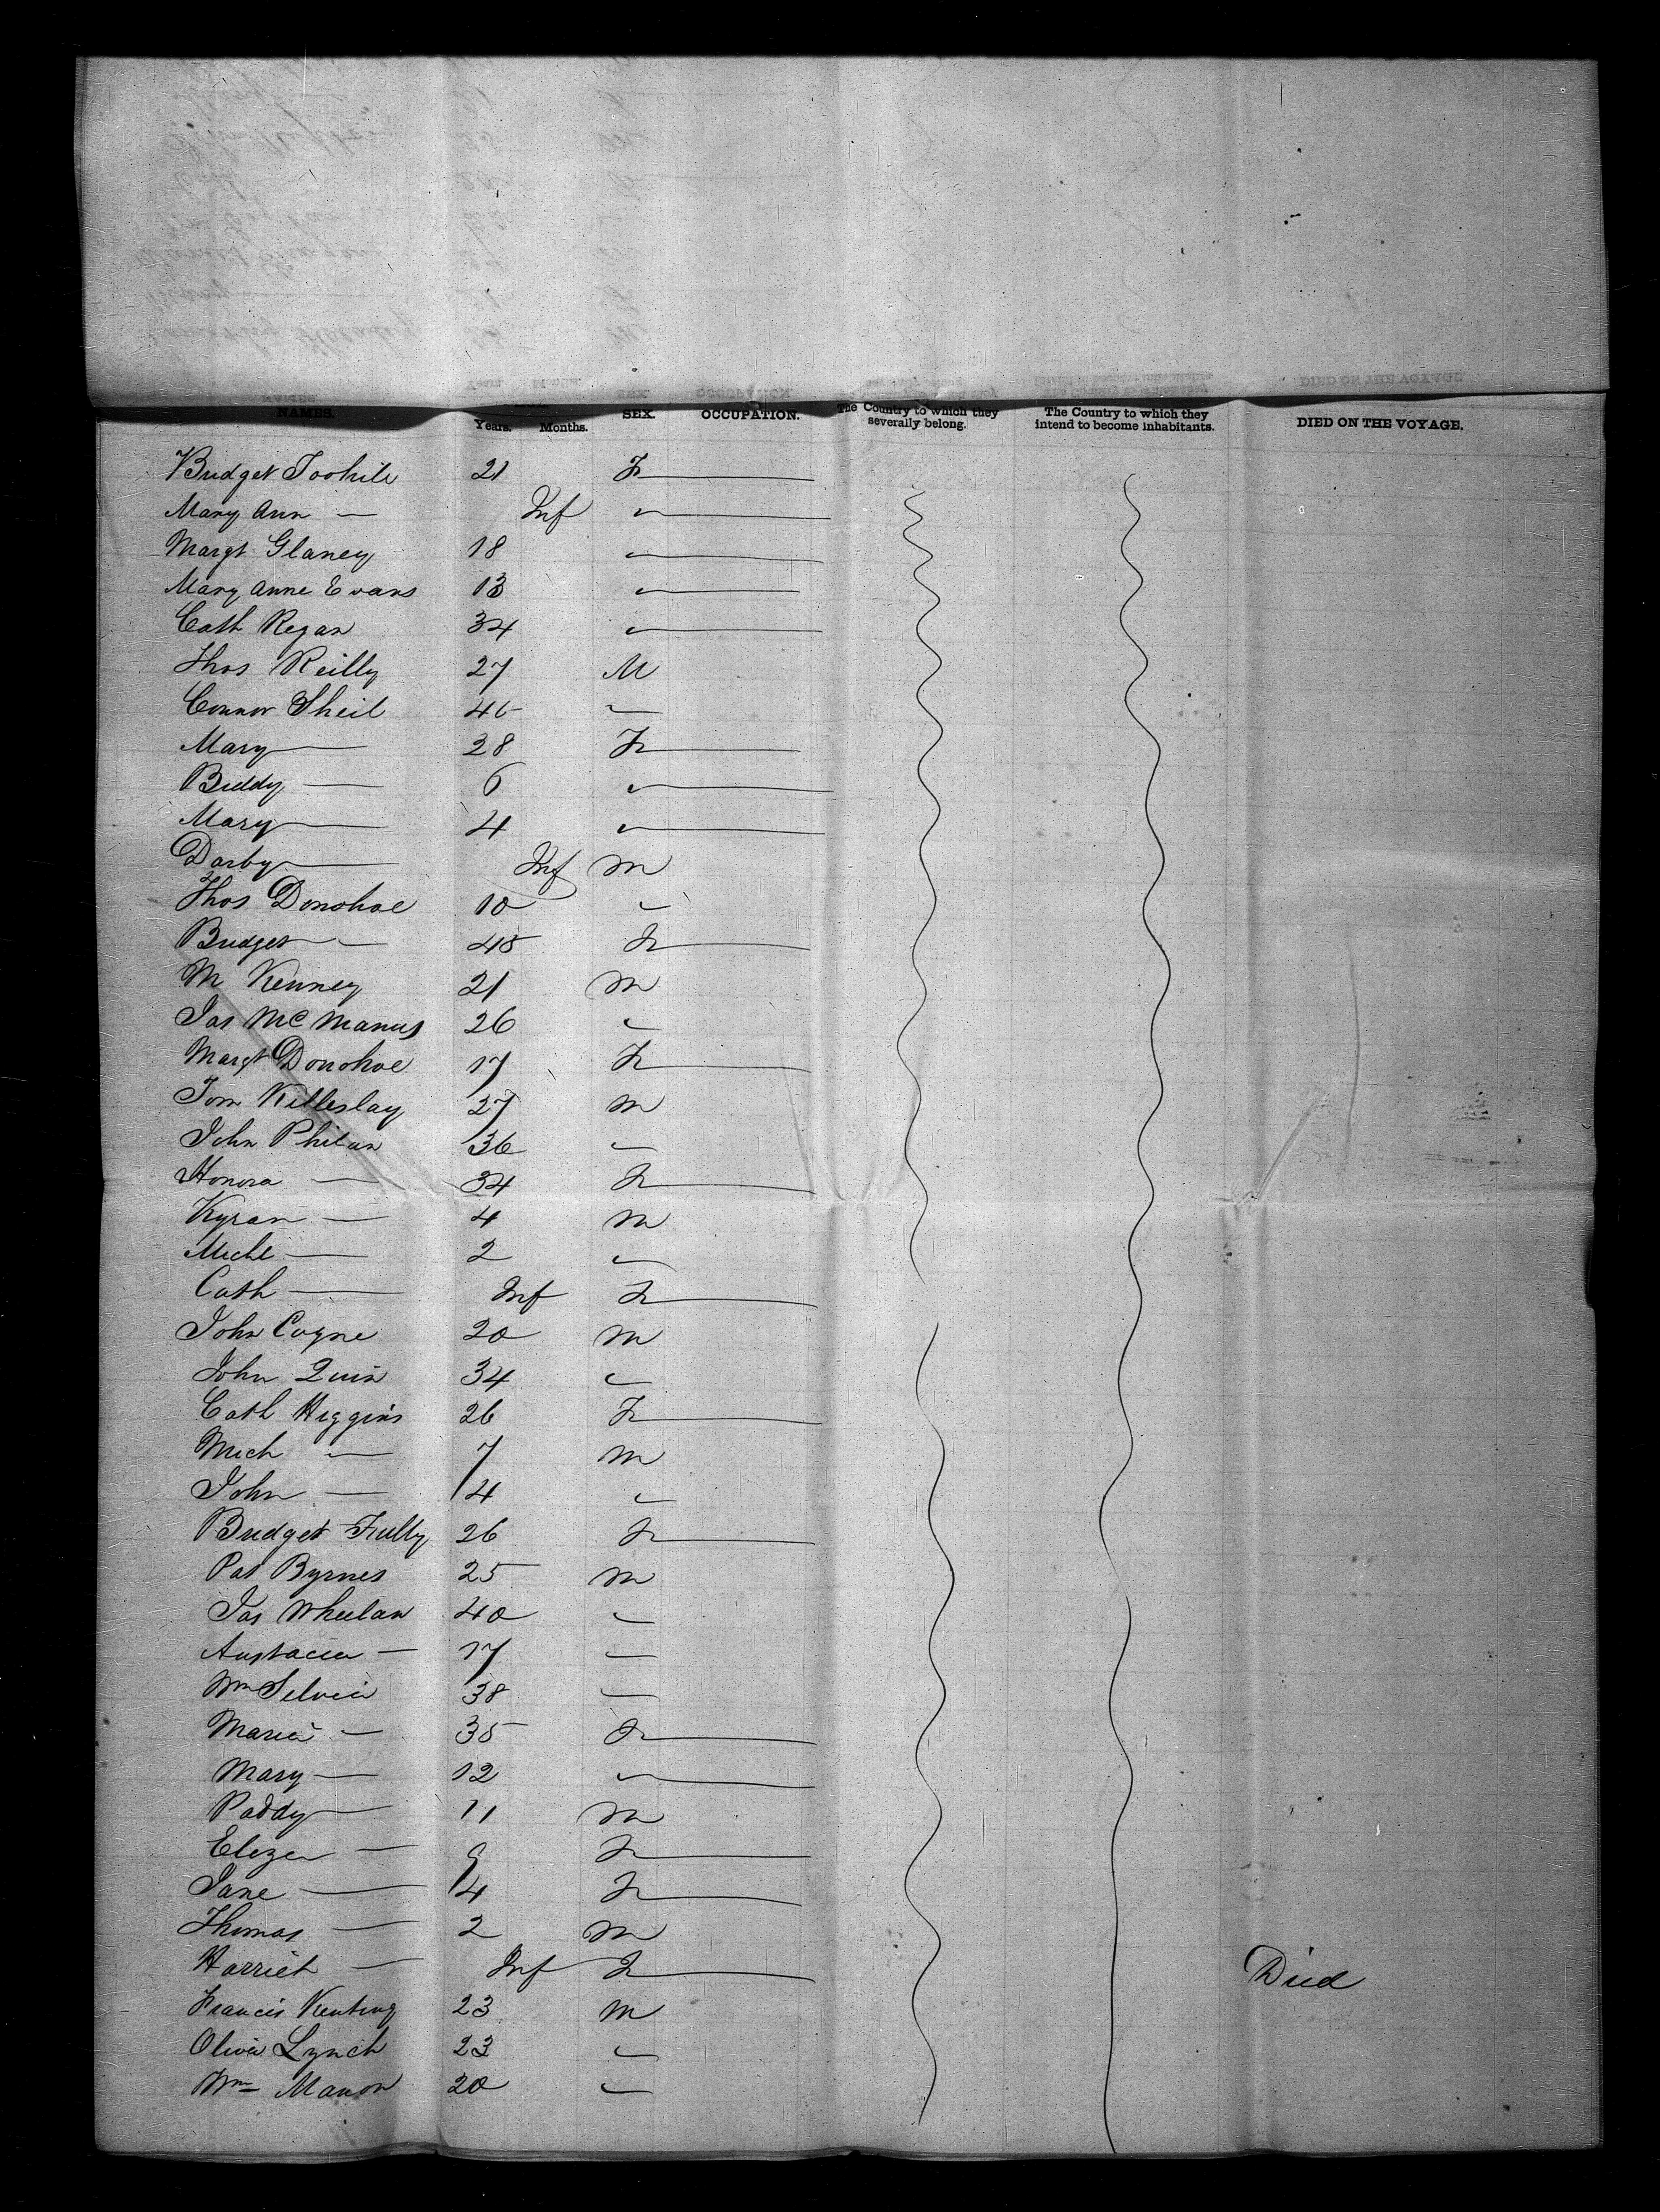 NAMES. Years. Months. SEX. OCCUPATION. The Country to which they severally belong. The Country to which they intend to become inhabitants. DIED ON THE VOYAGE.
Bridget Toohile 21 F
Mary Ann — Inf
Margt Glaney 18
Mary Anne Evans 13
Cath Regan 34
Thos Reilly 27 M
Connor Sheil
Mary — 28 F
Biddy — 6
Mary — 4
Darby — Inf M
Thos Donohoe 10
Bridget — F
M Kenney 21 M
Jas McManus 26
Margt Donohoe 17 F
Tom Killeslay 27 M
John Philan 36
Honora — 34 F
Kyran — 4 M
Michl — 2
Cath — Inf F
John Coyne 20 M
John Quin 34
Cath Higgins 26 F
Mich — 7 M
John — 4
Bridget Fully 26 F
Pat Byrnes 25 M
Jas Wheelan 40
17
Wm Silvia 38
Maria — 35 F
Mary — 12
Paddy — 11 M
Eliza — 9 F
Jane — 4 F
Thomas — 2 M
Harriet — Inf F Died
Francis Keating 23 M
Olivia Lynch 23
Wm Manon 20